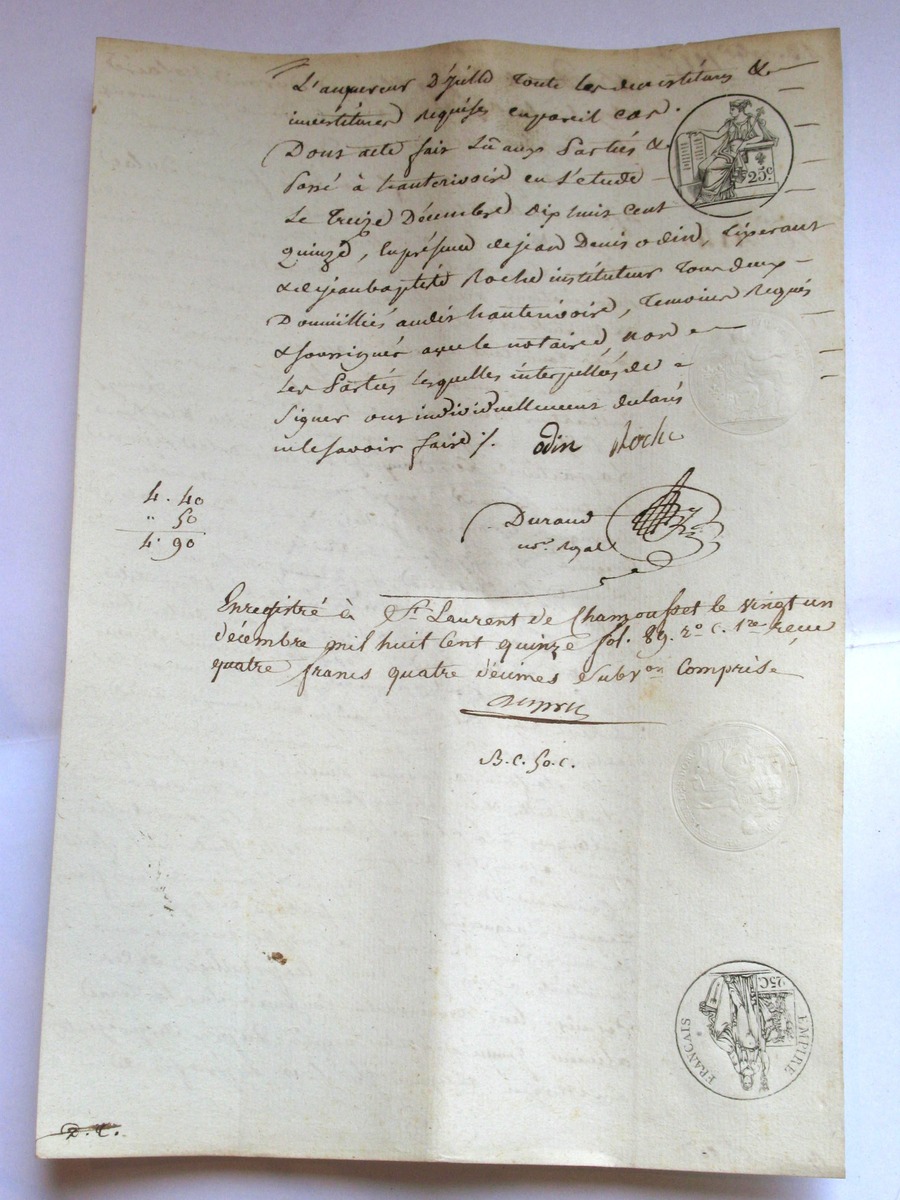 L'aquereur D'ycelle Toute les devestitures &
investitures Requises en pareil cas.
Dont acte fait Lu aux Parties &
Passé à hauterivoire en l'etude
Le Treize Décembre Dix huit cent
quinze, En présence de jean Denis odin,
& de jean baptiste Roche instituteur Tous deux
Domicilliés audit hauterivoire, Temoins Requis
& soussignés avec le notaire, non
Les Parties lesquelles interpellées de
Signer ont individuellement declaré
ne le savoir faire /.
odin Roche
4. 40
" 50
4. 90
Durand
no.re Royal
Enregistré à St. Laurent de Chamousset le vingt un
décembre mil huit Cent quinze fol. 89. r.o c. 1re reçu
quatre francs quatre décimes Subv.on Comprise
B. C. 50. c.
25c
EMPIRE
FRANÇAIS
25C
D. C.